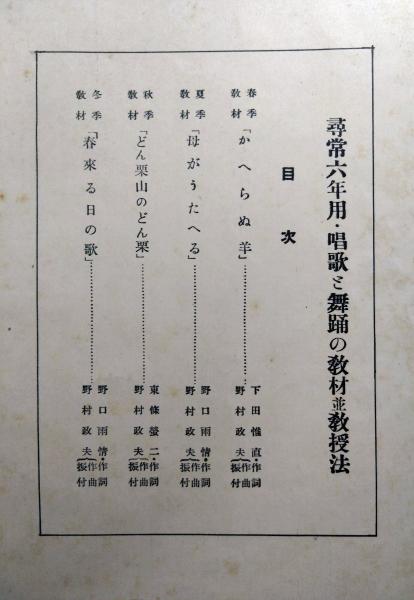 尋常六年用・唱歌と舞踊の教材並教授法
目次
春季教材「かへらぬ羊」………………下田惟直・作詞 野村政夫{作曲 振付
夏季教材「母がうたへる」………………野口雨情・作詞 野村政夫{作曲 振付
秋季教材「どん栗山のどん栗」………………東條螢二・作詞 野村政夫{作曲 振付
冬季教材「春來る日の歌」………………野口雨情・作詞 野村政夫{作曲 振付